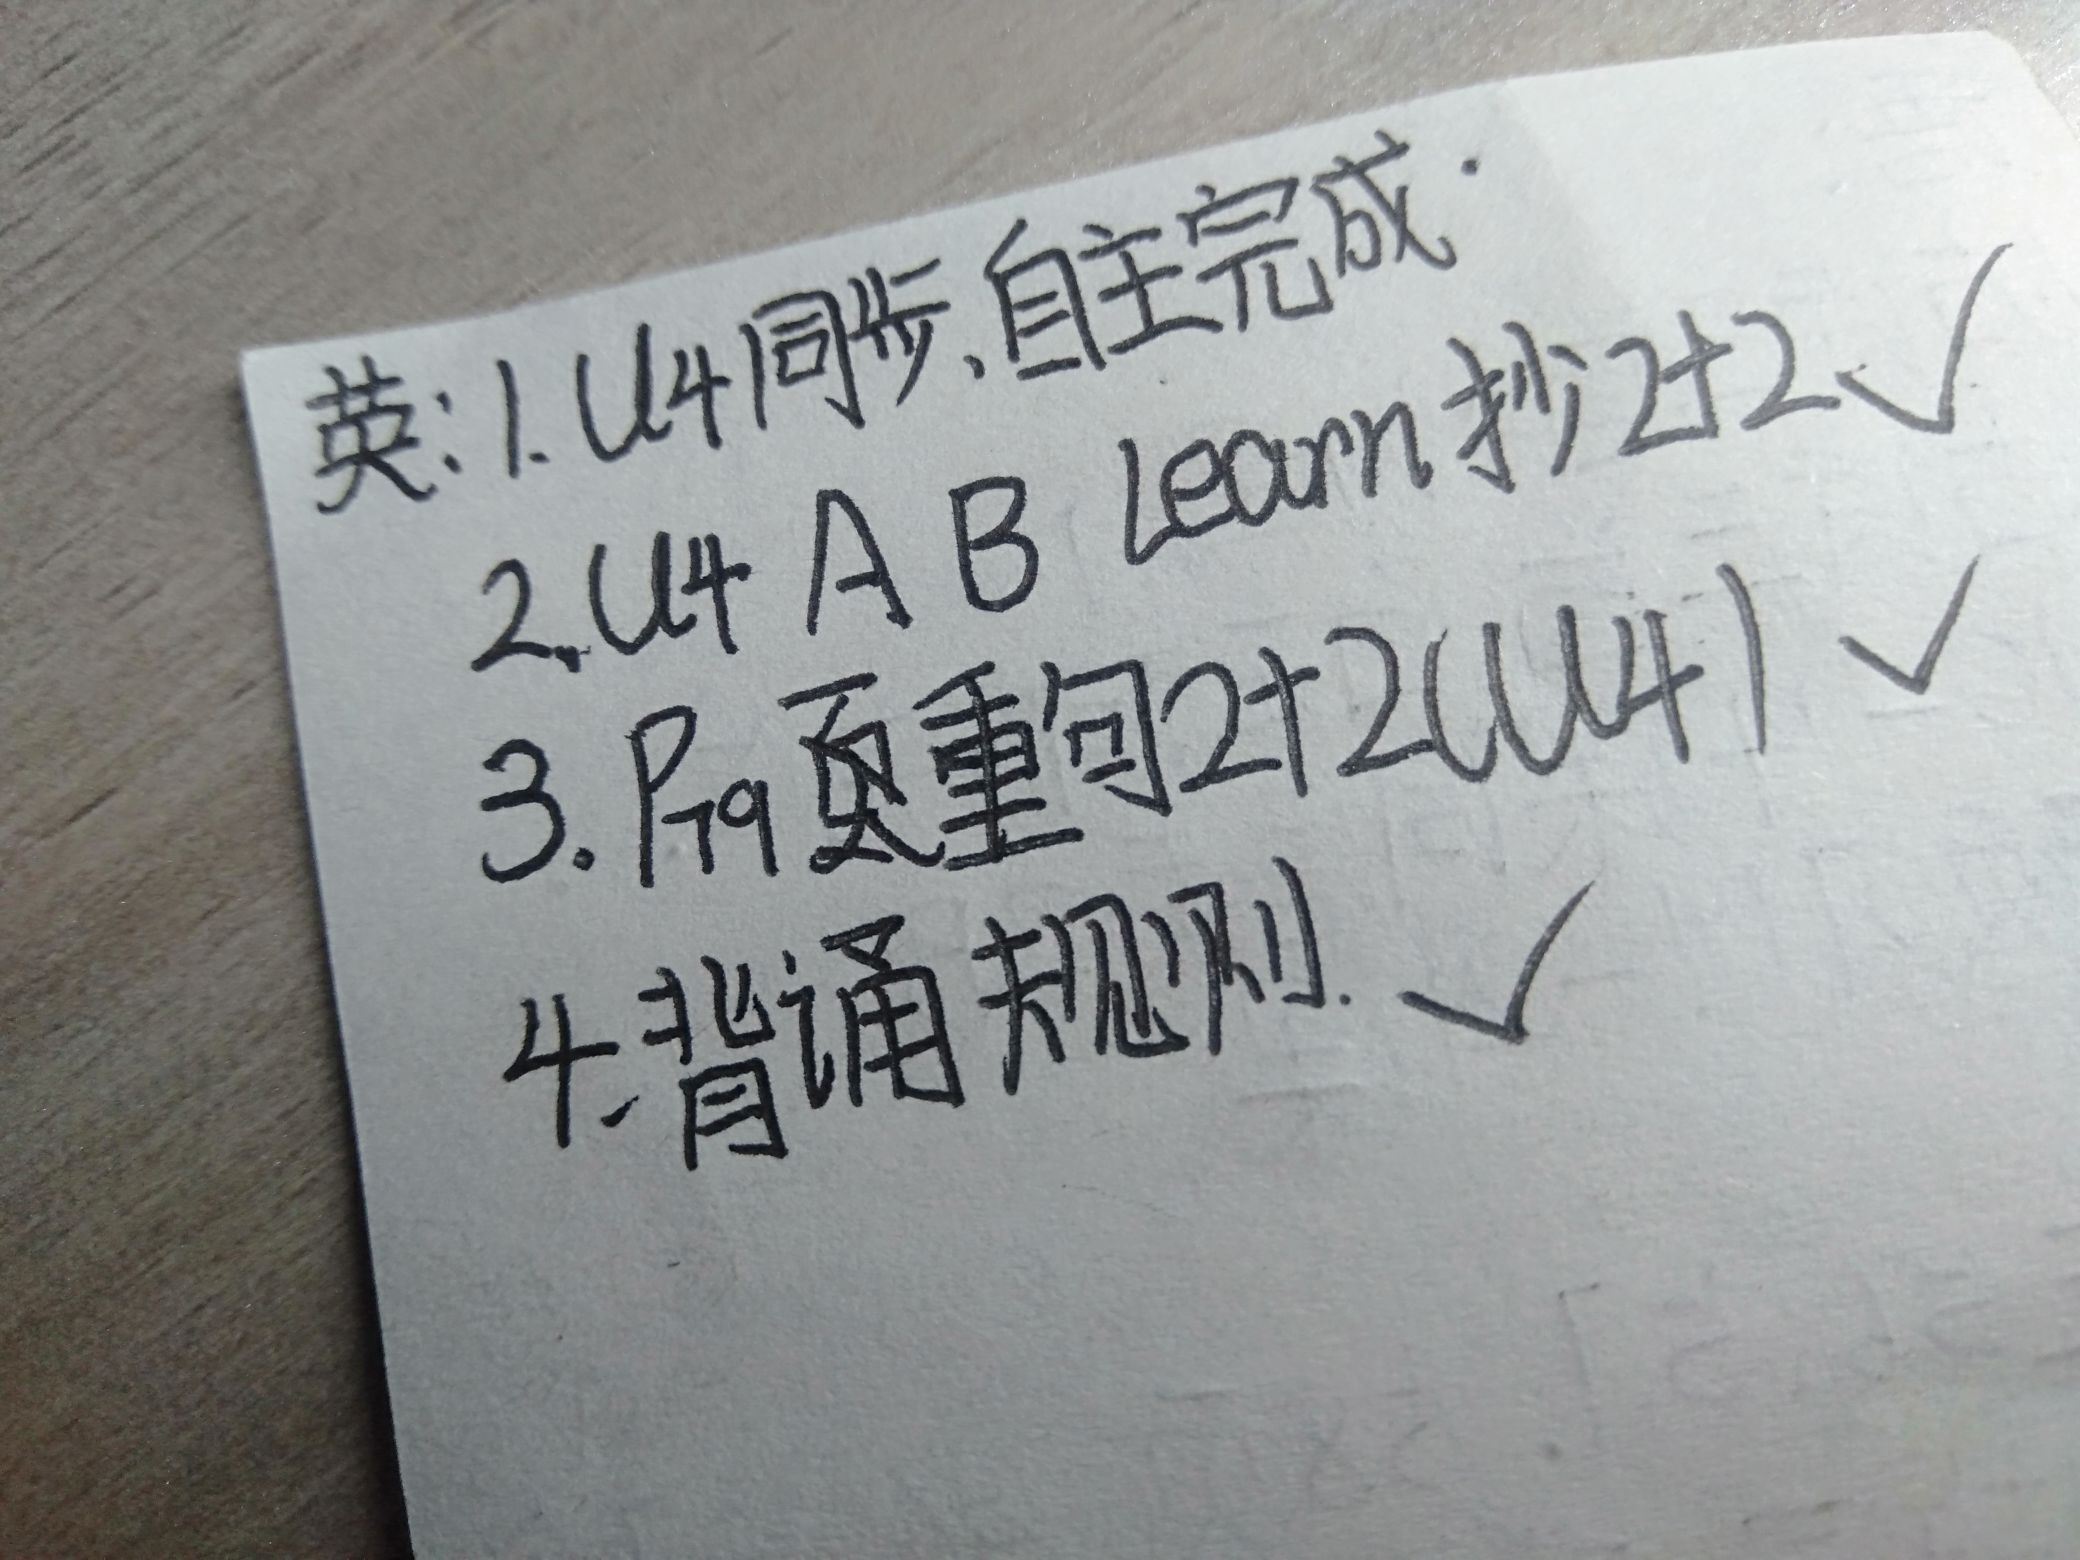 英:1.U4同步.自主完成.
2.U4 A B Learn抄2+2✓
3.P79页重句2+2(U4)✓
4.背诵规则.✓